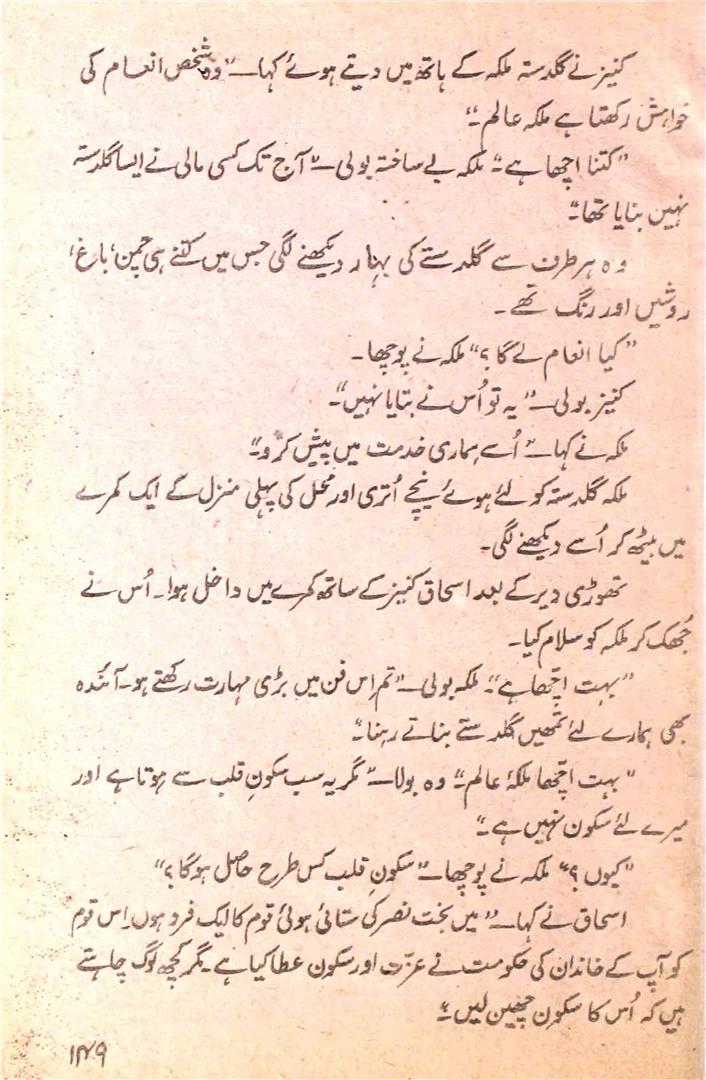 کنیز نے گلدستہ ملکہ کے ہاتھ میں دیتے ہوئے کہا۔ "وہ شخص انعام کی
خواہش رکھتا ہے ملکہ عالم۔"
"کتنا اچھا ہے۔" ملکہ بے ساختہ بولی۔ "آج تک کسی مالی نے ایسا گلدستہ
نہیں بنایا تھا۔"
وہ ہر طرف سے گلدستے کی بہار دیکھنے لگی جس میں کتنے ہی چمن، باغ،
روشیں اور رنگ تھے۔
"کیا انعام لے گا؟" ملکہ نے پوچھا۔
کنیز بولی۔ "یہ تو اُس نے بتایا نہیں۔"
ملکہ نے کہا۔ "اُسے ہماری خدمت میں پیش کرو۔"
ملکہ گلدستہ کو لئے ہوئے نیچے اُتری اور محل کی پہلی منزل کے ایک کمرے
میں بیٹھ کر اُسے دیکھنے لگی۔
تھوڑی دیر کے بعد اسحاق کنیز کے ساتھ کمرے میں داخل ہوا۔ اُس نے
جُھک کر ملکہ کو سلام کیا۔
"بہت اچّھا ہے۔" ملکہ بولی۔ "تم اِس فن میں بڑی مہارت رکھتے ہو۔ آئندہ
بھی ہمارے لئے تمھیں گلدستے بناتے رہنا۔"
"بہت اچّھا ملکۂ عالم۔" وہ بولا۔ "مگر یہ سب سکونِ قلب سے ہوتا ہے اور
میرے لئے سکون نہیں ہے۔"
"کیوں؟" ملکہ نے پوچھا۔ "سکونِ قلب کس طرح حاصل ہوگا؟"
اسحاق نے کہا۔ "میں بخت نصر کی ستائی ہوئی قوم کا ایک فرد ہوں۔ اِس قوم
کو آپ کے خاندان کی حکومت نے عزّت اور سکون عطا کیا ہے۔ مگر کچھ لوگ چاہتے
ہیں کہ اُس کا سکون چھین لیں۔"
۱۴۹